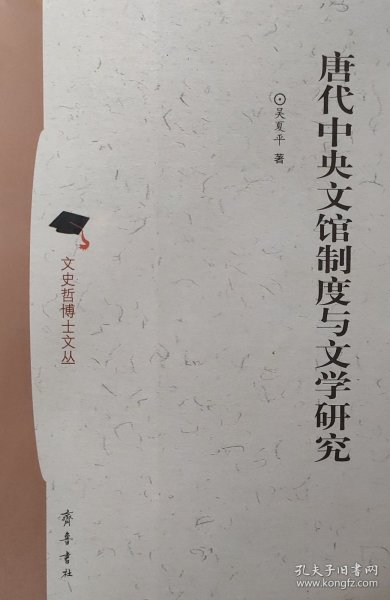 唐代中央文馆制度与文学研究
⊙吴夏平 著
文史哲博士文丛
齊鲁書社
孔夫子旧书网
www.kongfz.com